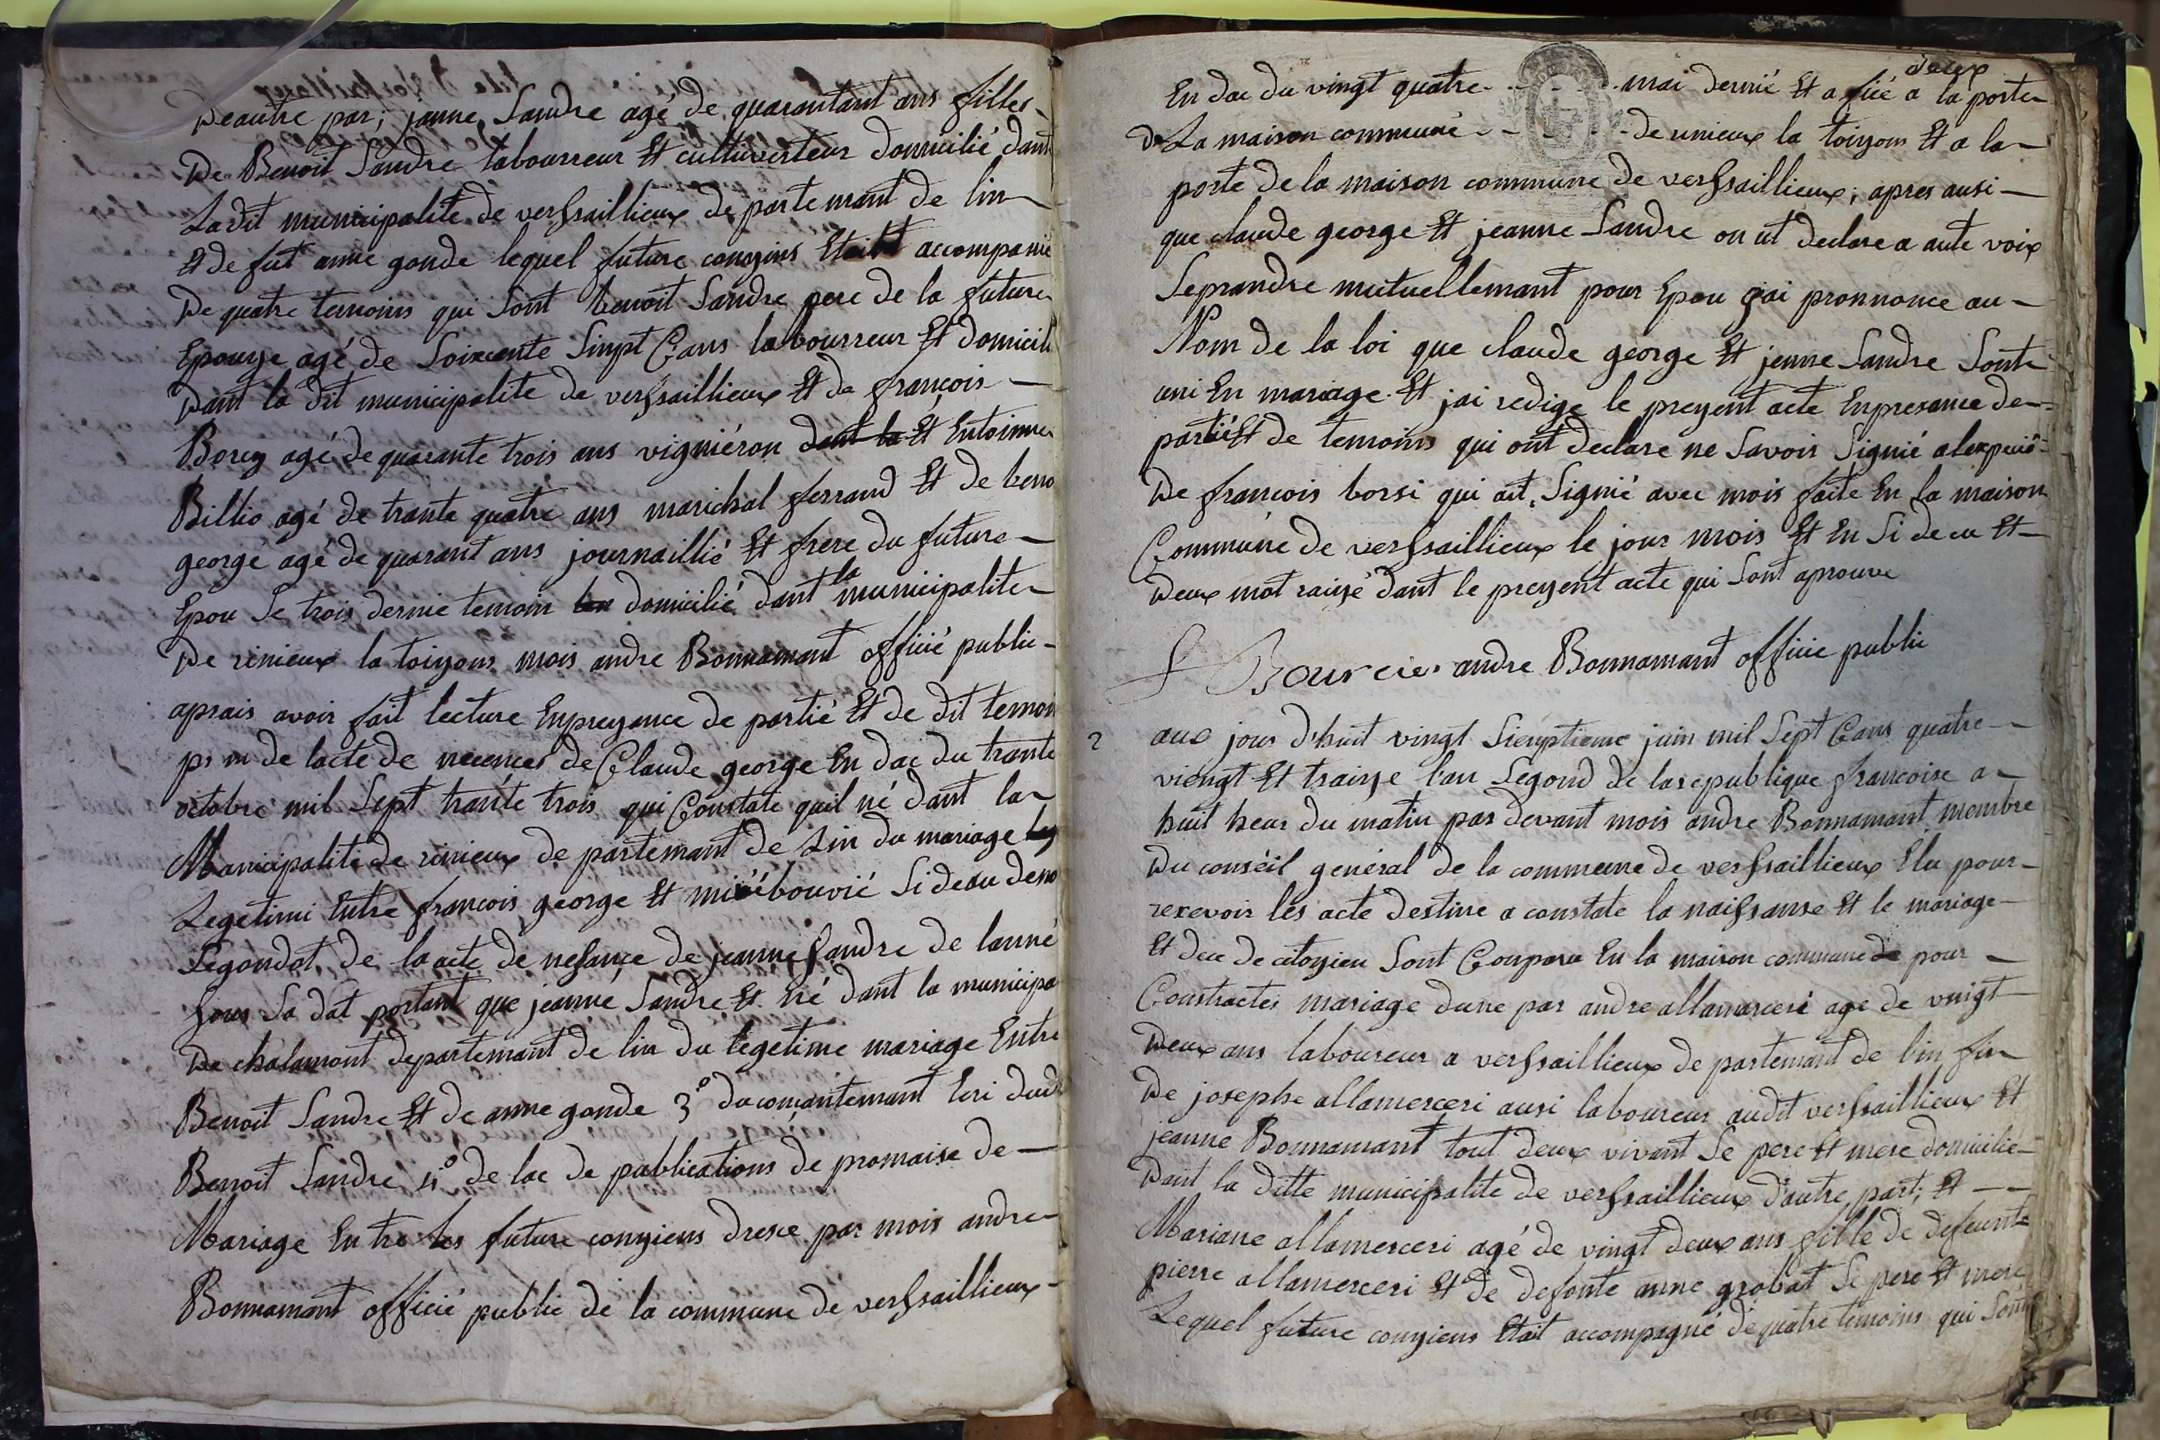 Deautre par; janne Sandre agé de quarantant ans filles
De Benoit Sandre labourreur Et cultuverteur domicilié dant
Ladit municipalite de versaillieux de partemant de lin
Et de fut anne gonde lequel future conyins Etait accompanié
De quatre temoins qui sont benoit Sandre pere de la future
Epouye agé de Soixcente Sinpt Cans labourreur Et domicili
Dant la dit municipalite de versaillieux Et de françois
Borcy agé de quarante trois ans vigniéron dant la Et Entoinne
Billio agé de trante quatre ans marichal ferrand Et de beno
george agé de quarant ans journaillié Et frere du future
Epou Le trois dernie temoin domicilié dant la municipalite
De rinieux la toiyons mois andre Bonnamant officié public
aprais avoir fait lecture Enpreyance de partié Et de dit temoi
de lacte de necences de Claude george En dac du trante
octobre mil Sept trante trois qui Constate quil né dant la
Manicipalite de rinieux de partemant de Lin du mariage
Legetimi Entre francois george Et bouvié Si deçu deno
Segondot de la acte de nesance de jeanne Sandre de lanné
Sous Sa dat portant que jeanne Sandre Et né dant la municipa
De chalamont departemant de lin du legetime mariage Entre
Benoit Sandre Et de anne gonde 3° du consantemant Ecri dud
Benoit Sandre 4° de lac de publications de promaise de
Mariage Entre les future conyiens dresce par mois andre
Bonnamant officié public de la commune de versaillieux
deux
En dac du vingt quatre mai dernié Et afiié a la porte
De La maison communé de rinieux la toiyons Et a la
porte de la maison commune de versaillieux; apres ausi
que claude george Et jeanne Sandre on ut declare a aute voix
Seprandre mutuellemant pour Epou jai pronnonce au
Nom de la loi que claude george Et jenne Sandre Sont
uni En mariage Et jai redige le preyent acte Enpresance de
partié Et de temoins qui ont declare ne Savoir Signié
De francois borsi qui ait Signié avec mois faite En La maison
Commune de versaillieux le jour mois Et En Si de cu Et
Deux mot raiyé dant le preyent acte qui Sont aprouve
f Bourcier andre Bonnamant officie public
2 aux jour d'huit vingt Sieuptieme juin mil Sept Cans quatre
viengt Et traiye l'an Segond de la republique francoise a
huit heur du matin par devant mois andre Bonnamant membre
Du conséil general de la commune de versaillieux Elu pour
recevoir les acte destine a constate la naissanse Et le mariage
Et dece de citoyien Sont Conparu En la maison commune de pour
Contractes mariage dune par andre allamerceri age de vingt
Deux ans laboureur a versaillieux de partemant de lin fin
De josephe allamerceri ausi laboureur audit versaillieux Et
jeanne Bonnamant tout deux vivant Le pere Et mere domicilie
Dant la ditte municipalite de versaillieux d'autre part; Et
Mariane allamerceri agé de vingt deux ans fille de defeunte
pierre allamerceri Et de defonte anne grobat Le pere Et mere
Lequel future conyiens Etait accompagné de quatre temoins qui Sont